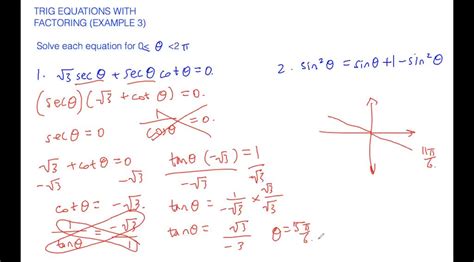 TRIG EQUATIONS WITH
FACTORING (EXAMPLE 3)
Solve each equation for 0≤ θ <2π
1. √3 secθ + secθ cotθ = 0.
(secθ)(√3 + cotθ) = 0.
secθ = 0
1/cosθ = 0.
√3 + cotθ = 0
-√3 -√3
cotθ = -√3
1/tanθ = -√3
tanθ(-√3) = 1
-√3 -√3
tanθ = 1/-√3 × √3/√3
tanθ = √3/-3
θ = 5π/6,
2. sin²θ = sinθ + 1 - sin²θ
11π/6.